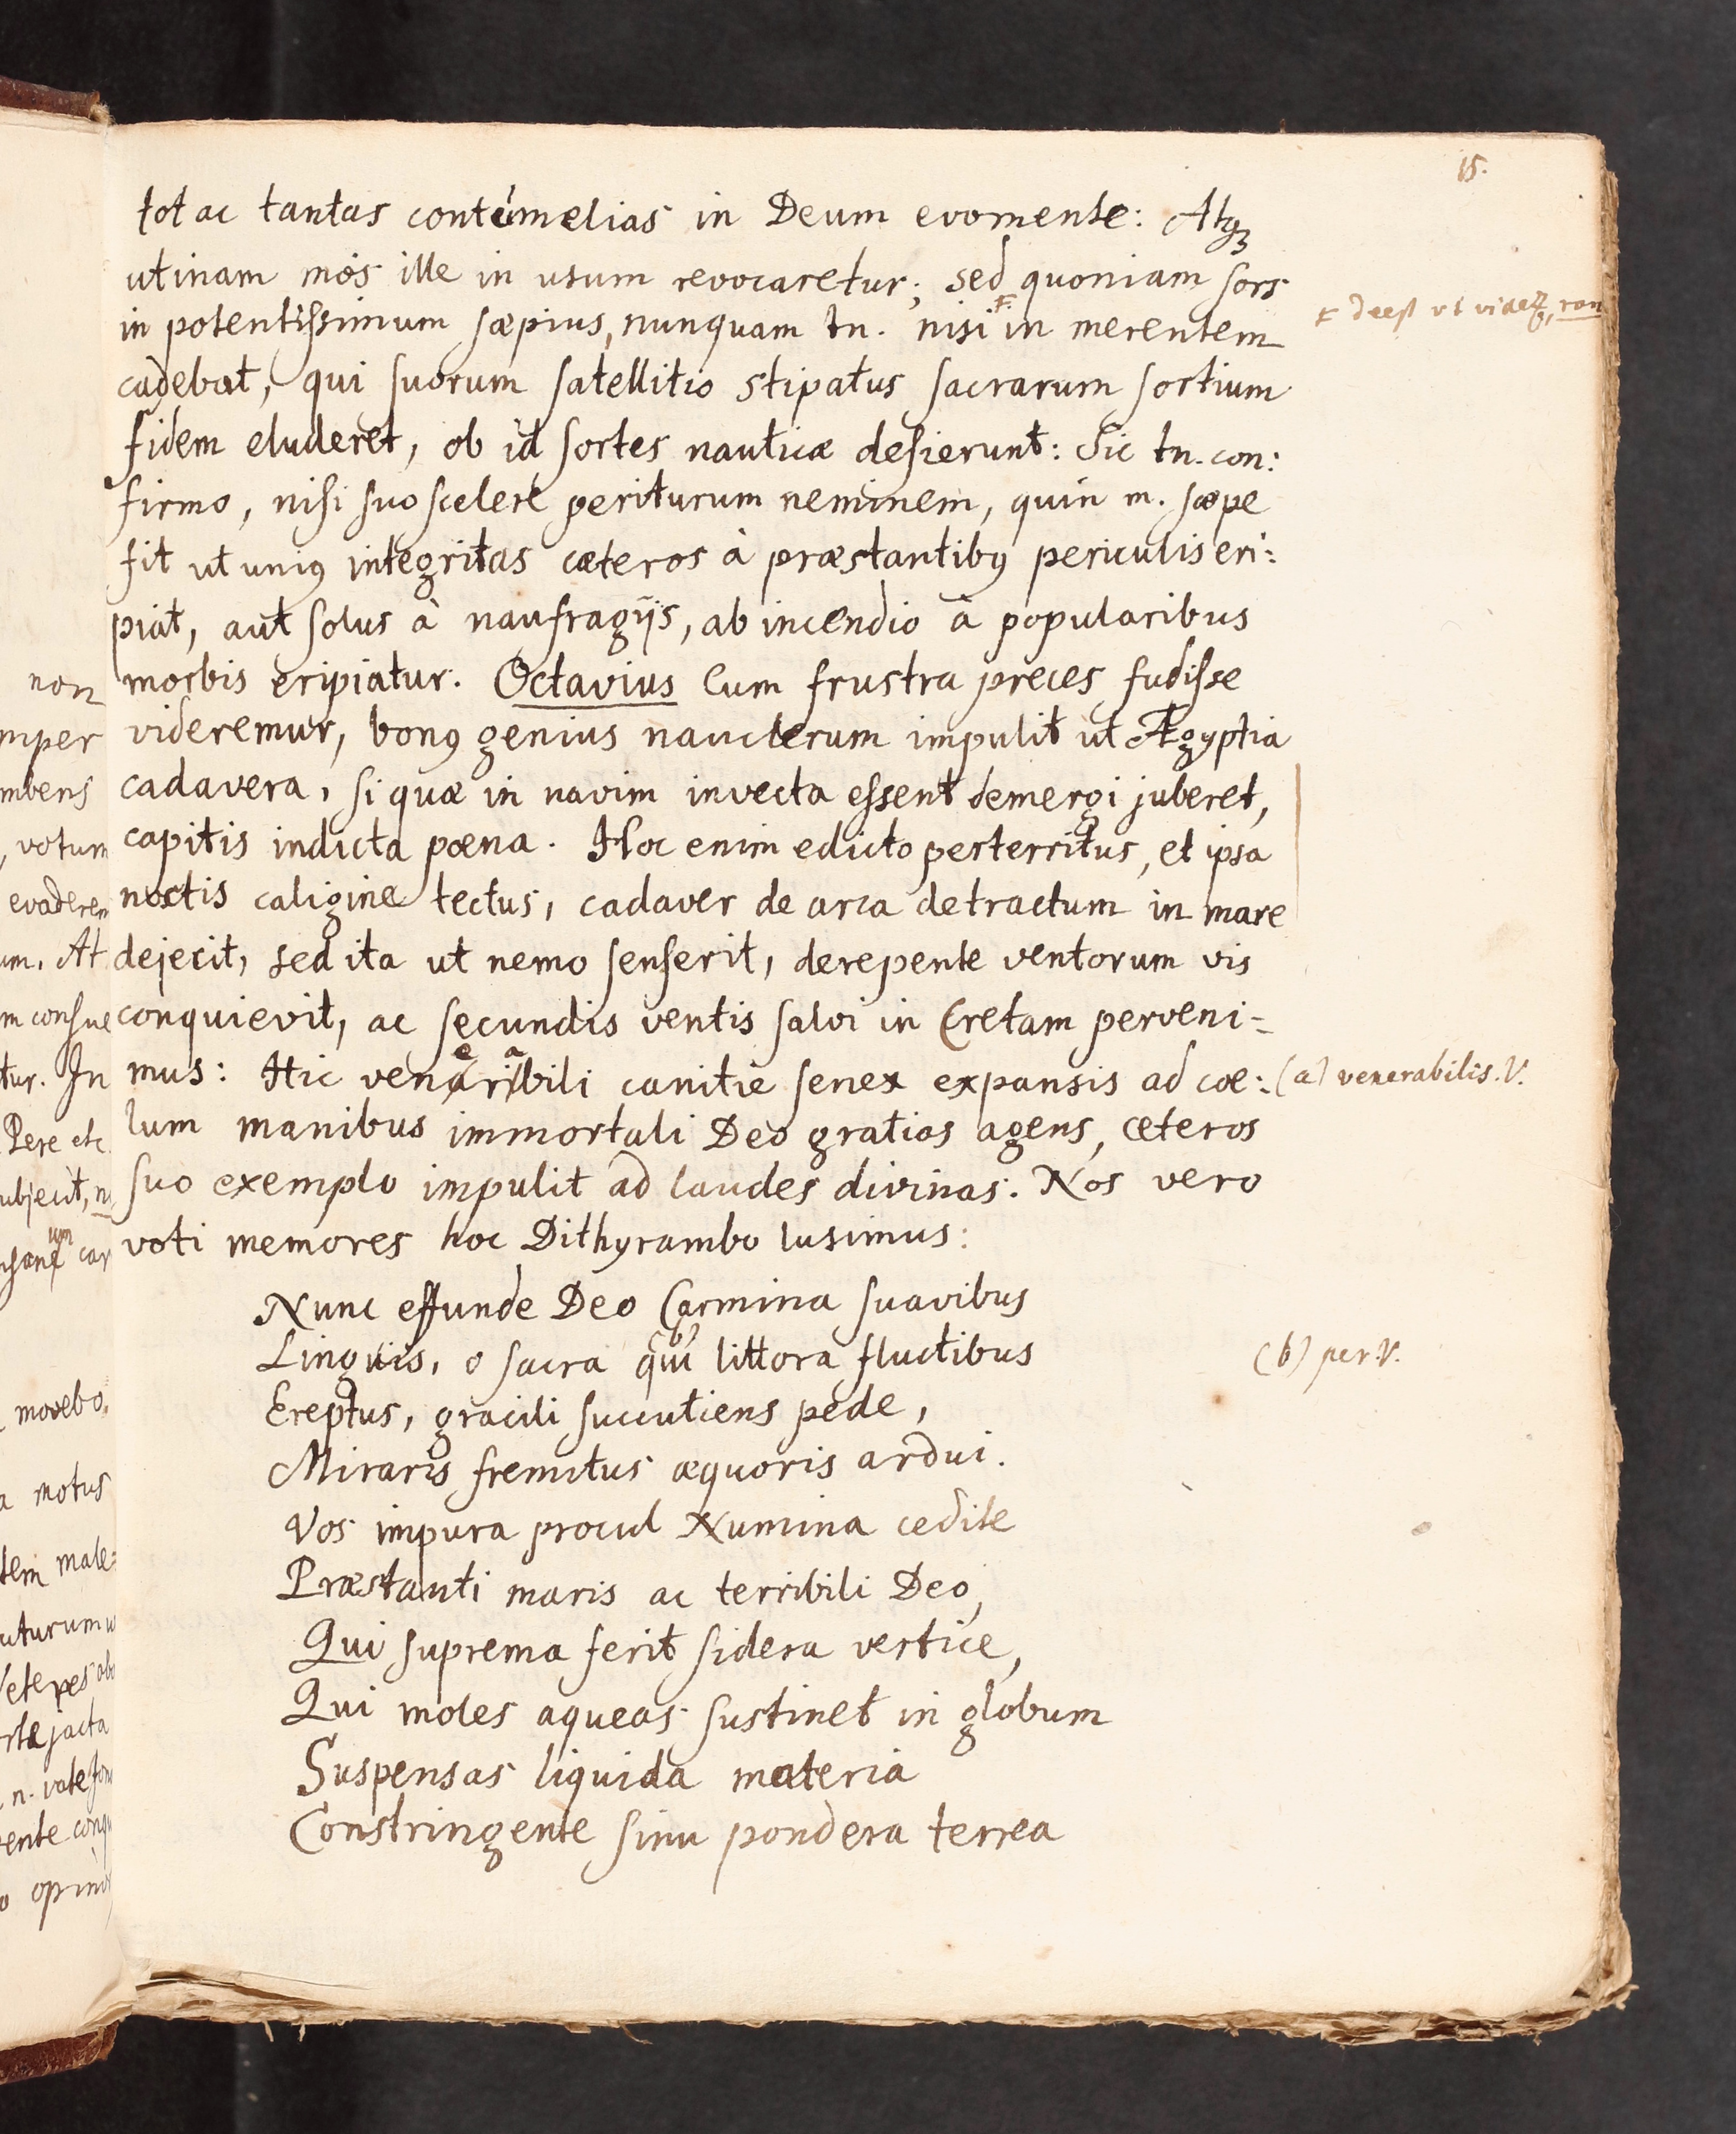 15.
tot ac tantas contúmelias in Deum evomente: Atq́ꝫ
utinam mos ille in usum revocaretur; sed quoniam sors
in potentissimum sæpius, nunquam tn. nisi F. in merentem
F deest ut videt,
cadebat, qui suorum satellitio stipatus sacrarum sortium
fidem eluderet, ob id sortes nauticæ desierunt: Sic tn. con:
firmo, nisi suo scelere periturum neminem, quin m. sæpe
fit ut uniꝯ integritas cæteros à præstantibꝯ periculis eri:
piat, aut solus à naufragijs, ab incendio à popularibus
morbis eripiatur. Octavius Cum frustra preces fudisse
videremur, bonꝯ genius nauclerum impulit ut Ægyptia
cadavera, si quæ in navim invecta essent demergi juberet,
capitis indicta pœna. Hoc enim edicto perterritus, et ipsa
noctis caligine tectus, cadaver de arca detractum in mare
dejecit, sed ita ut nemo senserit, derepente ventorum vis
conquievit, ac secundis ventis salvi in Cretam perveni=
mus: Hic venerabili canitie senex expansis ad cœ:
(a) venerabilis. V.
lum manibus immortali Deo gratias agens, cæteros
suo exemplo impulit ad laudes divinas. Nos vero
voti memores hoc Dithyrambo lusimus:
Nunc effunde Deo Carmina suavibus
Linguis, o sacra qui (b) littora fluctibus
(b) per. V.
Ereptus, gracili succutiens pede,
Miraris fremitus æquoris ardui.
Vos impura procul Numina cedite
Præstanti maris ac terribili Deo,
Qui suprema ferit sidera vertice,
Qui moles aqueas sustinet in globum
Suspensas liquida materia
Constringente sinu pondera terrea
non
mper
mbens
votum
evaderem
um. At
m consue
tur. In
Pere etc.
ubjecit,
movebo.
a motus
tem male=
uturum
jacta
opinor